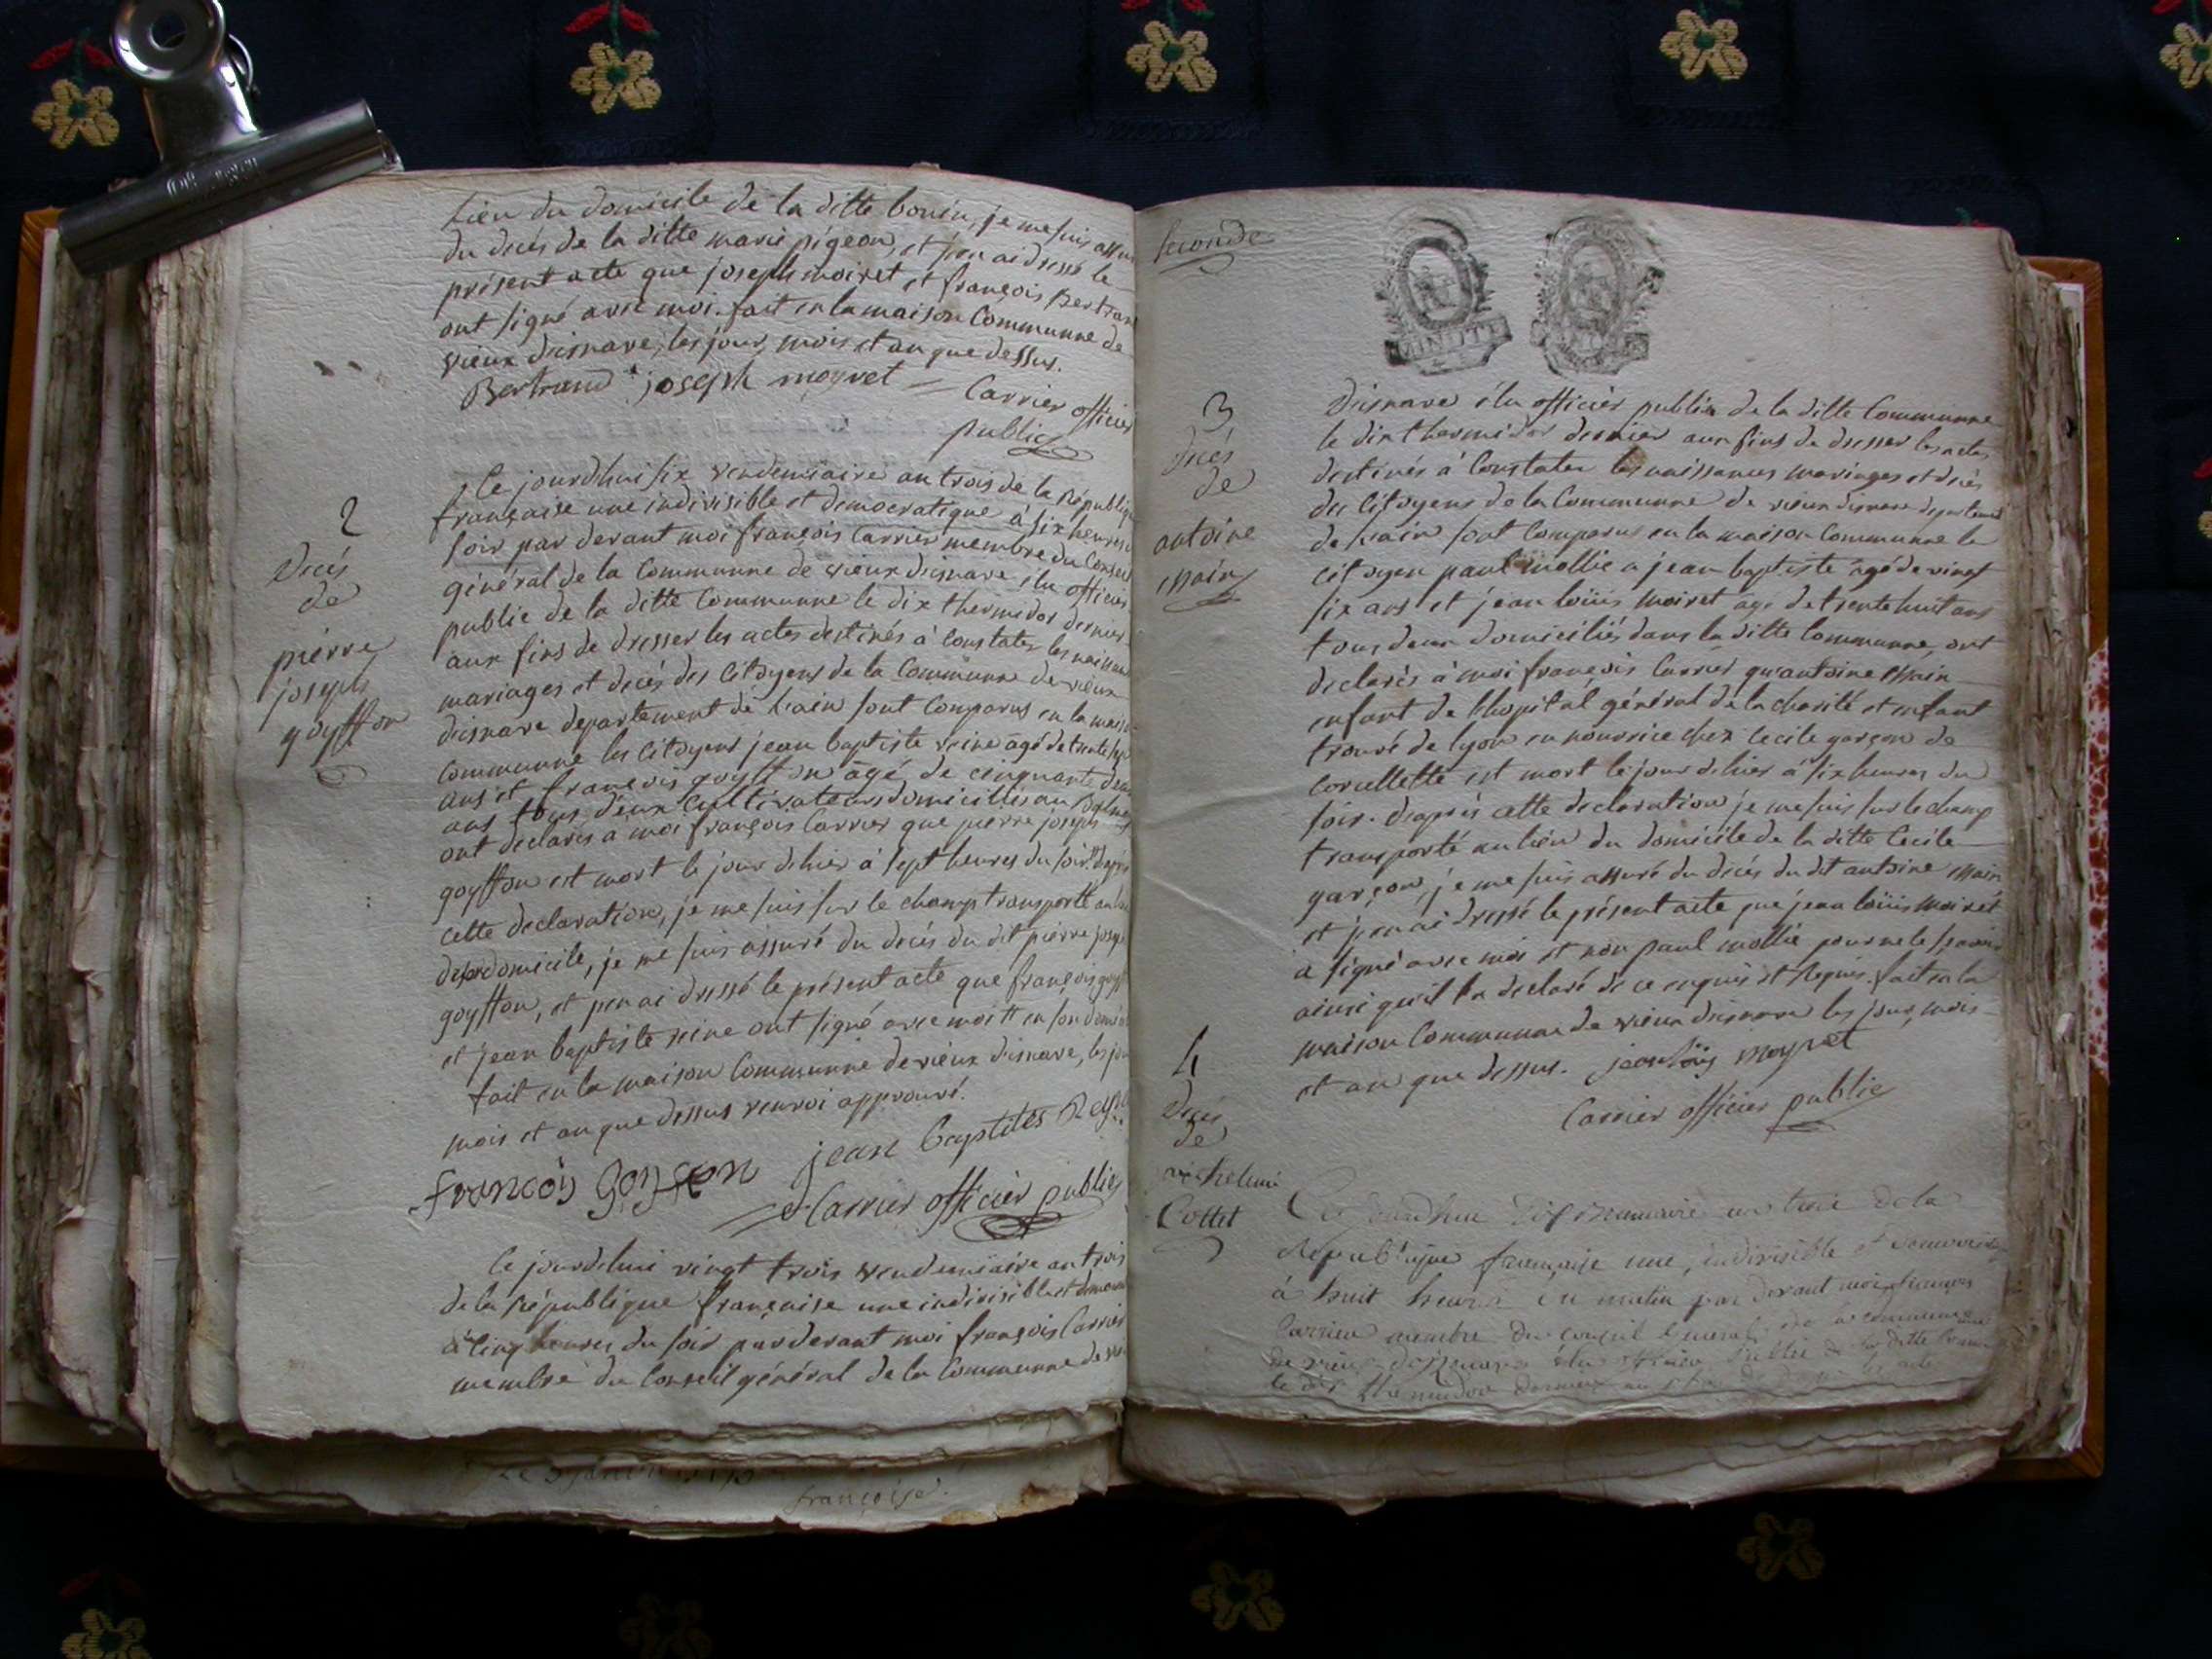 lieu du domicile de la ditte bouin, je me suis assuré
du decés de la ditte marie pigeon, et j'en ai dressé le
présent acte que joseph moiret et françois Bertrand
ont signé avec moi. fait en la maison Communne de
vieux disnave, les jour, mois et an que dessus.
Bertrand joseph moyret Carrier officier
public
2
Decés
de
pierre
joseph
goyffon
Ce jourdhui six vendemiaire an trois de la République
française une indivisible et democratique à six heures
soir par devant moi françois Carrier membre du Conseil
général de la Communne de vieux disnave élu officier
public de la ditte Communne le dix thermidor dernier
aux fins de dresser les actes destinés à Constater les naissances
mariages et decés des Citoyens de la Communne de vieux
disnave departement de l'ain sont Comparus en la maison
Communne les Citoyens jean baptiste reine agé de trente sept
ans et françois goyffon agé de cinquante deux
ans tous deux Cultivateurs domiciliés au
ont declarés à moi françois Carrier que pierre joseph
goyffon est mort le jour dehier à sept heures du soir. D'après
cette declaration, je me suis sur le champ transporté au lieu
domicile, je me suis assuré du decés du dit pierre joseph
goyffon, et j'en ai dressé le présent acte que françois goyffon
et jean baptiste reine ont signé avec moi en son domicile
fait en la maison Communne de vieux disnave, les jour
mois et an que dessus renvoi approuvé.
françois Goyffon jean baptites Reyne
Carrier officier public
Ce jourdhui vingt trois vendemiaire an trois
de la République française une indivisible et democratique
à Cinq heures du soir par devant moi françois Carrier
membre du Conseil général de la Communne de vieux
françoise
seconde
3
Decés
de
antoine
main
disnave élu officier public de la ditte Communne
le dix thermidor dernier aux fins de dresser les actes
destinés à Constater les naissances mariages et decés
des Citoyens de la Communne de vieux disnave departement
de l'ain sont Comparus en la maison Communne le
citoyen paul mollie à jean baptiste agé de vingt
six ans et jean louis moiret agé de trente huit ans
tous deux domiciliés dans la ditte Communne, ont
declarés à moi françois Carrier qu'antoine main
enfant de l'hopital général de la charité et enfant
trouvé de lyon en nourrice chez Cecile garçon de
Corcellette est mort le jour dehier à six heures du
soir. d'après cette declaration je me suis sur le champ
transporté au lieu du domicile de la ditte Cecile
garçon, je me suis assuré du decés du dit antoine main
et j'en ai dressé le présent acte que jean louis moiret
a signé avec moi et non paul mollie pour ne le savoir
ainsi qu'il l'a declaré de ce enquis et Requis. fait en la
maison Communne de vieux disnave les jour, mois
et an que dessus. jean loüis moyret
Carrier officier public
4
Decés
de
Cottet
Ce jourdhui brumaire an trois de la
République française une, indivisible et democratique
à huit heures du matin par devant moi françois
Carrier membre du conseil general de la commune
de vieux disnave élu officier public de la ditte commune
le dix thermidor dernier aux fins de dresser les actes